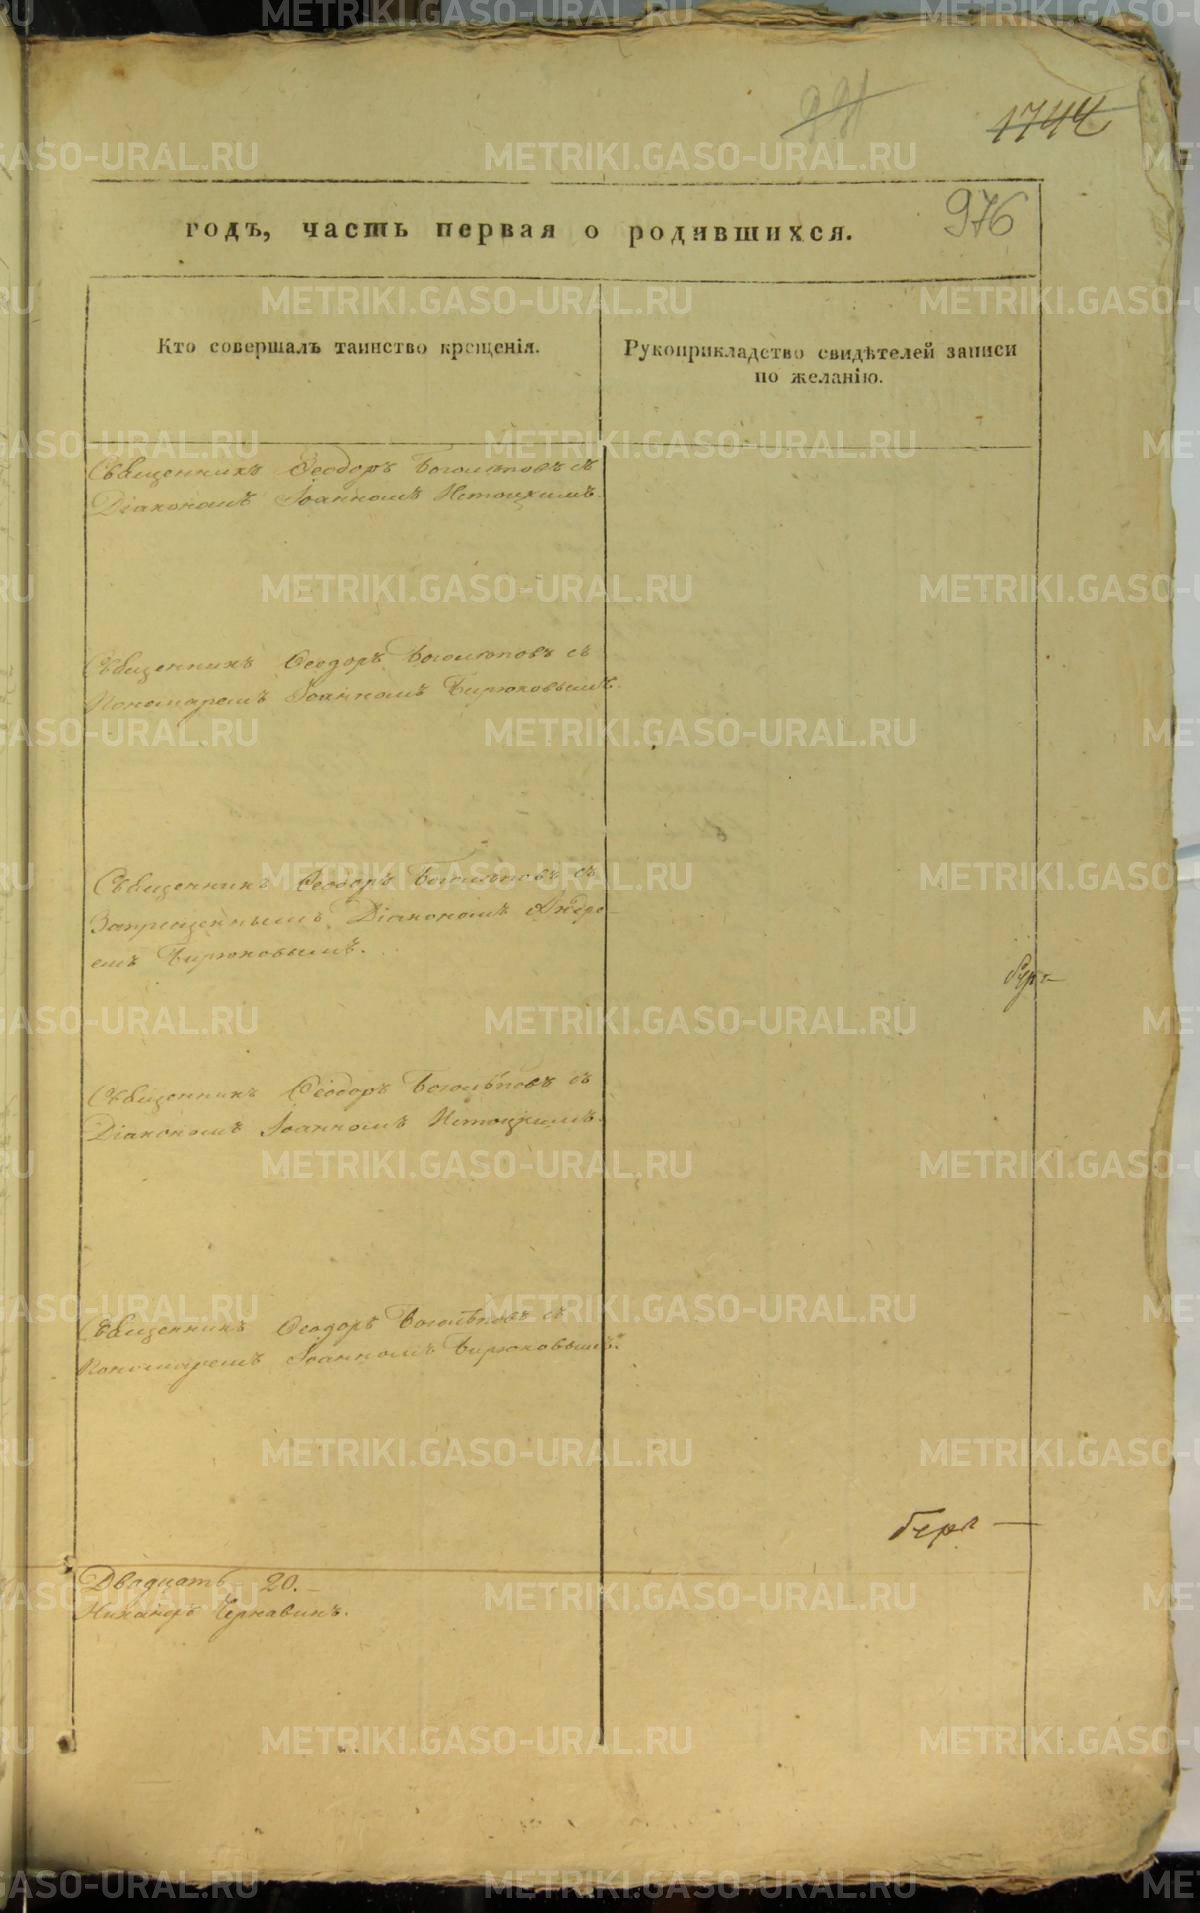 991
1744
976
годъ, часть первая о родившихся.
Кто совершалъ таинство крещенія.
Рукоприкладство свидѣтелей записи
по желанію.
Священникъ Ѳеодоръ Боголѣповъ съ
Діакономъ Іоанномъ Истоцкимъ.
Священникъ Ѳеодоръ Боголѣповъ съ
Пономаремъ Іоанномъ Бирюковымъ.
Священникъ Ѳеодоръ Боголѣповъ съ
Запрещеннымъ Діакономъ Андре-
емъ Бирюковымъ.
Священникъ Ѳеодоръ Боголѣповъ съ
Діакономъ Іоанномъ Истоцкимъ.
Священникъ Ѳеодоръ Боголѣповъ съ
Пономаремъ Іоанномъ Бирюковымъ.
Двадцать 20.
Никаноръ Чернавинъ.
METRIKI.GASO-URAL.RU